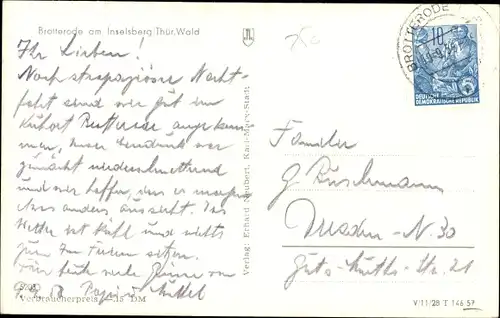 Brotterode am Inselsberg Thür. Wald
Ihr Lieben!
Nach strapaziöser Nacht-
fahrt sind wir gut im
Kurort Brotterode angekom-
men, Unser Eindruck war
zunächst niederschmetternd
und wir hoffen, dass es morgen
alles anders aussieht. Das
Wetter ist kalt und nichts
zum Im Freien sitzen.
viele Grüsse von
Verbraucherpreis DM
Verlag: Erhard Neubert, Karl-Marx-Stadt
BROTTERODE
10
DEUTSCHE
DEMOKRATISCHE REPUBLIK
Familie
G. Buschmann
Dresden-N. 30
Guts-Muths-Str. 21
V/11/28 T 146 57